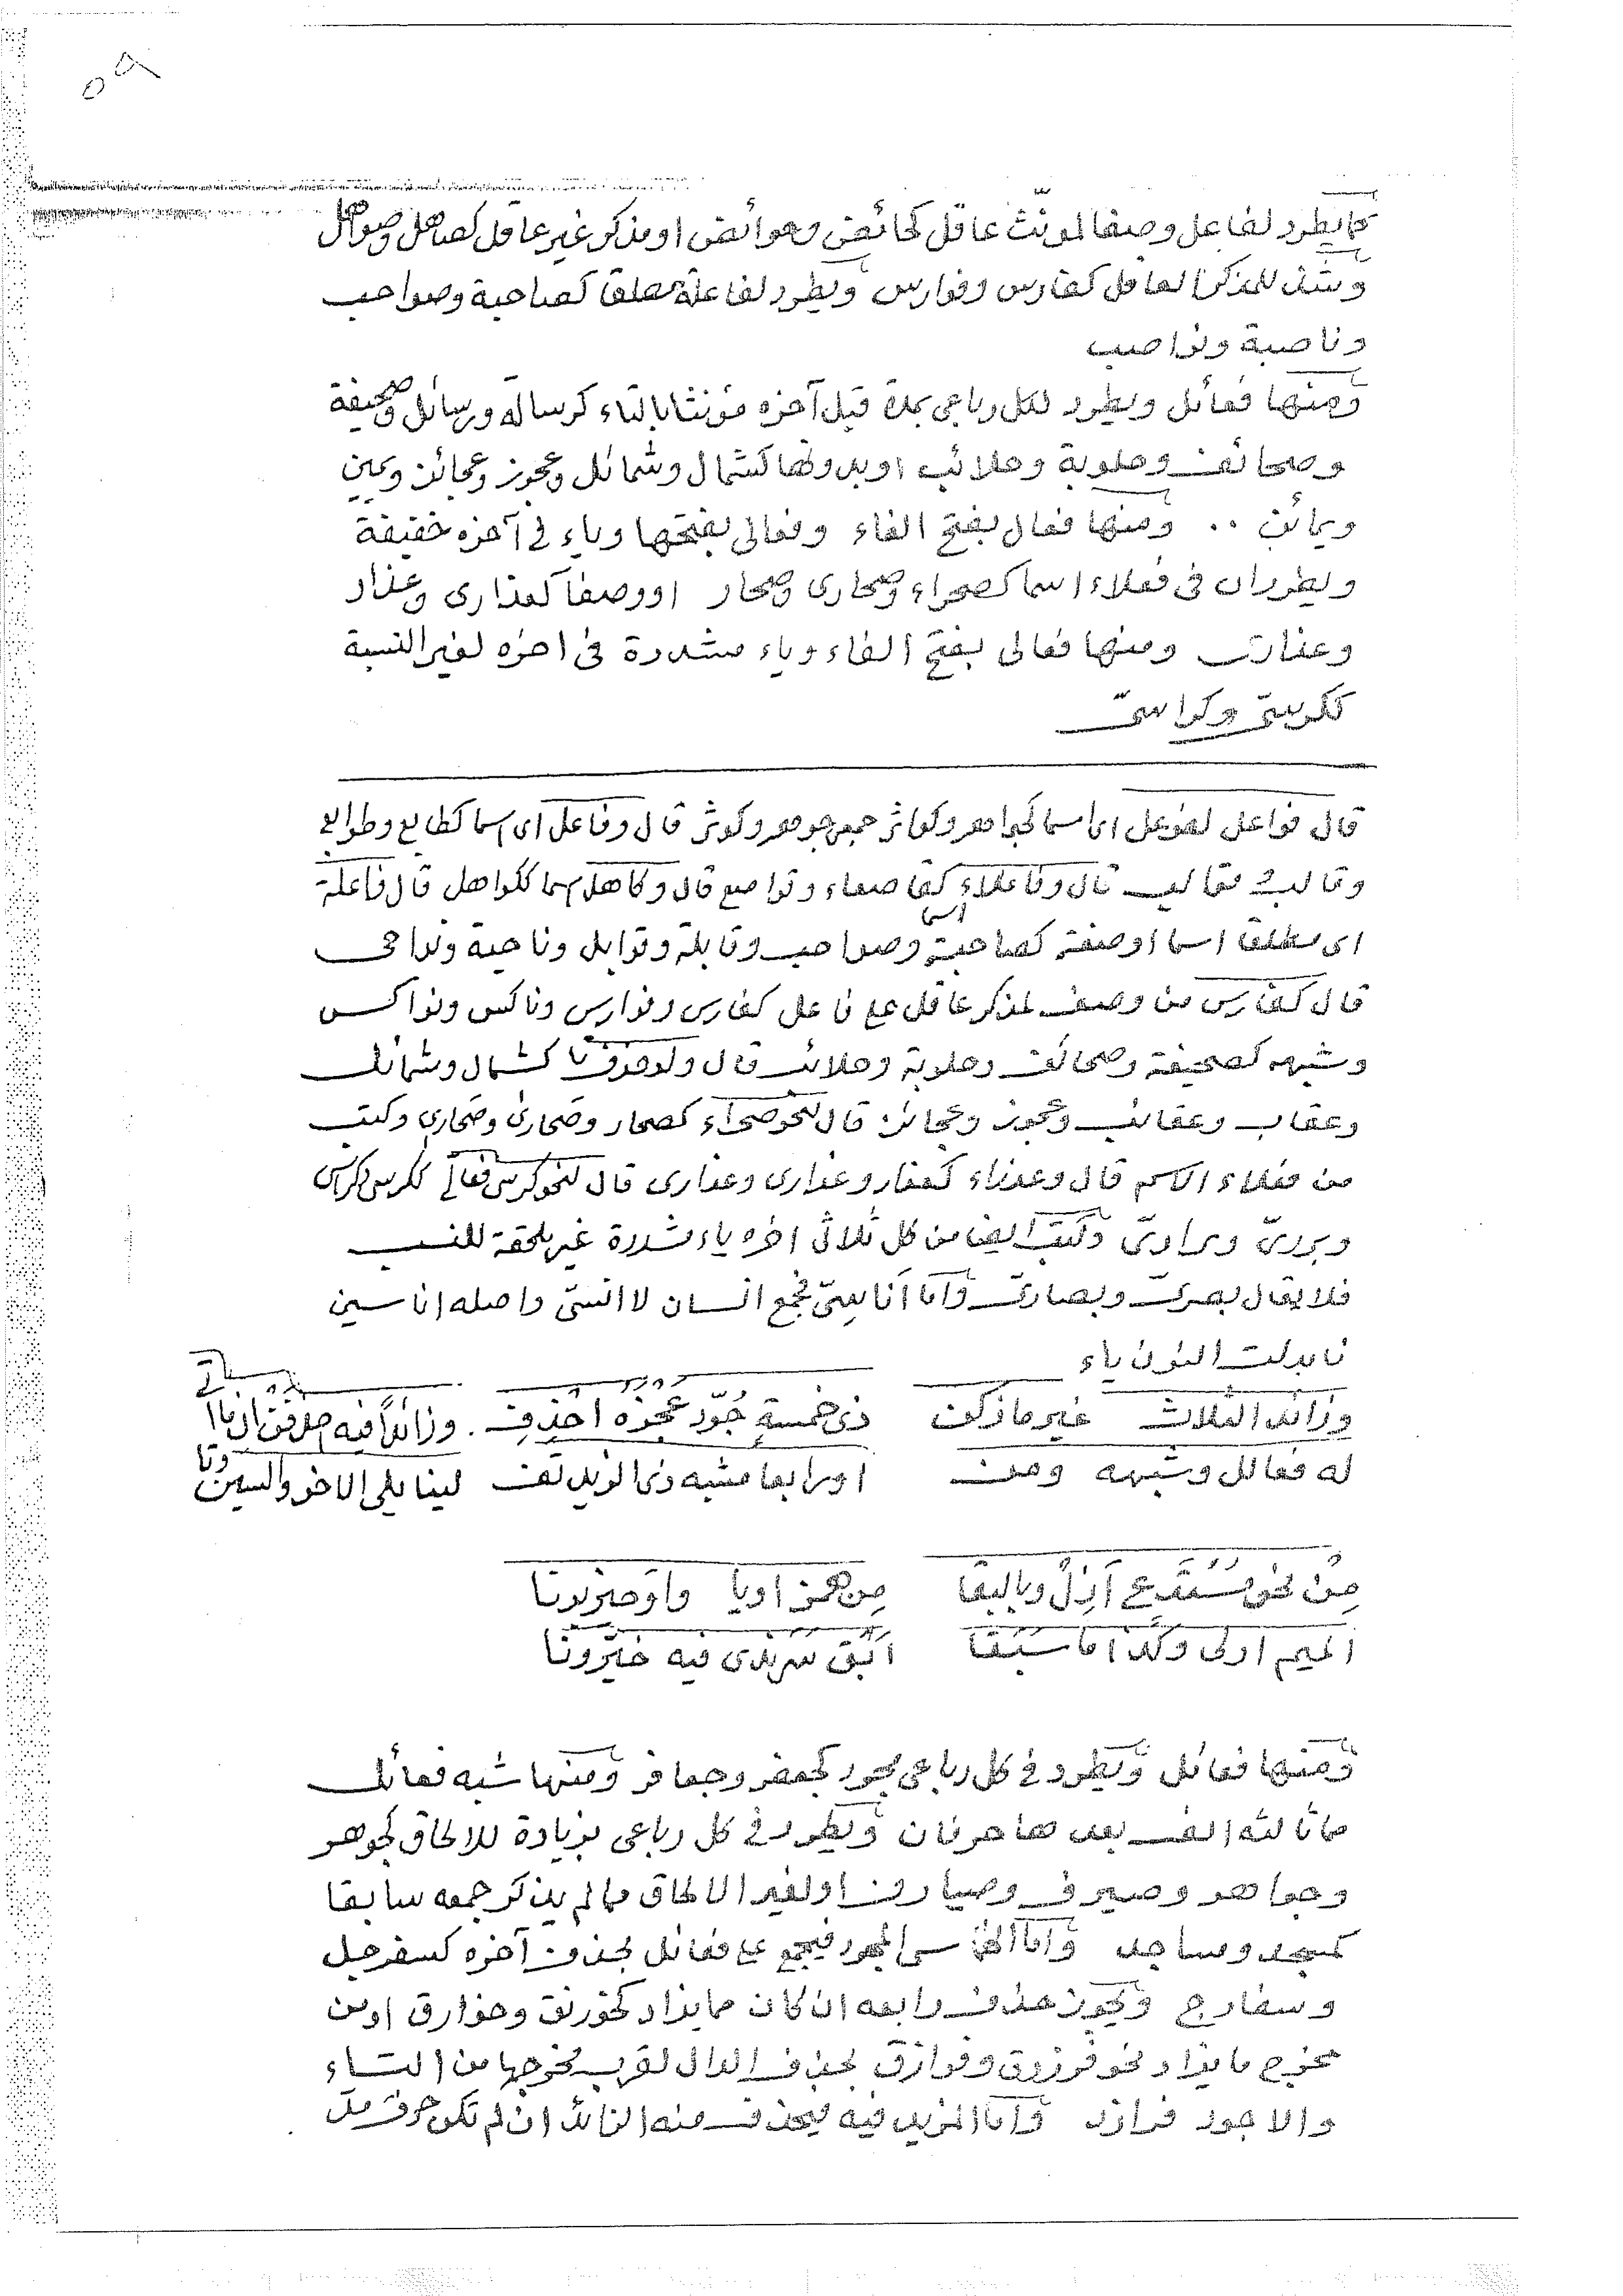 ٥٨
كما يطرد لفاعل وصفا لمونّث عاقل كحائض وحوائض او مذكر غير عاقل كصاهل وصواهل
وشذ للمذكر العاقل كفارس وفوارس ويطرد لفاعلة مطلقا كصاحبة وصواحب
وناصبة ونواصب
ومنها فعائل ويطرد لكل رباعي بمدة قبل آخره مؤنثا بالتاء كرسالة ورسائل وصحيفة
وصحائف وحلوبة وحلائب او بدونها كشمال وشمائل وعجوز وعجائز ويمين
ويمائن .. ومنها فعال بفتح الفاء وفعالى بفتحها وياء في آخره خفيفة
ويطردان في فعلاء اسما كصحراء وصحارى وصحار او وصفا كعذارى وعذار
وعذارى ومنها فعالى بفتح الفاء وياء مشددة في اخره لغير النسبة
ككرسيّ وكراسيّ
قال فواعل لفوعل اى اسما كجواهر وكواثر جمع جوهر وكوثر قال وفاعل اى اسما كطابع وطوابع
وقالب وقوالب قال وفاعلاء كقاصعاء وقواصع قال وكاهل اسما ككواهل قال فاعلة
اى مطلقا اسما او صفة كصاحبة وصواحب وقابلة وقوابل وناحية ونواحى
اسما
قال كفارس من وصف لمذكر عاقل على فاعل كفارس وفوارس وناكس ونواكس
وشبهه كصحيفة وصحائف وحلوبة وحلائب قال ولو حذف تا كشمال وشمائل
وعقاب وعقائب وعجوز وعجائز قال لنحو صحراء كصحار وصحارى وصحاري وكتب
من فعلاء الاسم قال وعذراء كعذار وعذارى وعذارى قال لنحو كرسي فعالي ككرسي وكراسي
وبرديّ وبراديّ وكتب ايضا من كل ثلاثى اخره ياء مشددة غير ملحقة للنسب
فلا يقال بصرىّ وبصارىّ وأما أناسيّ فجمع انسان لا انسيّ واصله اناسين
فابدلت النون ياء
وزائد الثلاث غير ما زكن ذى خمسةٍ جُرّد عجزه احذفِ . وزائداً فيه احذفن ان ما
له فعالل وشبهه ومن او رابعا مشبه ذى الزيد تف لينا يلى الاخر والسين وتا
مِن نحو مُسْتَدعٍ أزِلْ وبالبقا مِن همز او يا واوَ حيزبونا
الميم اولى وكذا ما سبقا أبق سرندى فيه خيّرونا
ومنها فعالل ويطرد في كل رباعى مجرد كجعفر وجعافر ومنها شبه فعالل
مما ثالثه الف بعدها حرفان ويطرد في كل رباعى بزيادة للالحاق كجوهر
وجواهر وصيرف وصيارف او لغير الالحاق مما لم يذكر جمعه سابقا
كمسجد ومساجد وأما الخماسى المجرد فيجمع على فعالل بحذف آخره كسفرجل
وسفارج ويجوز حذف رابعه ان كان مما يزاد كخورنق وخوارق او من
مخرج ما يزاد نحو فرزدق وفرازق بحذف الدال لقرب مخرجها من التاء
والاجود فرازد وأما المزيد فيه فيحذف منه الزائد ان لم تكن حرف مد